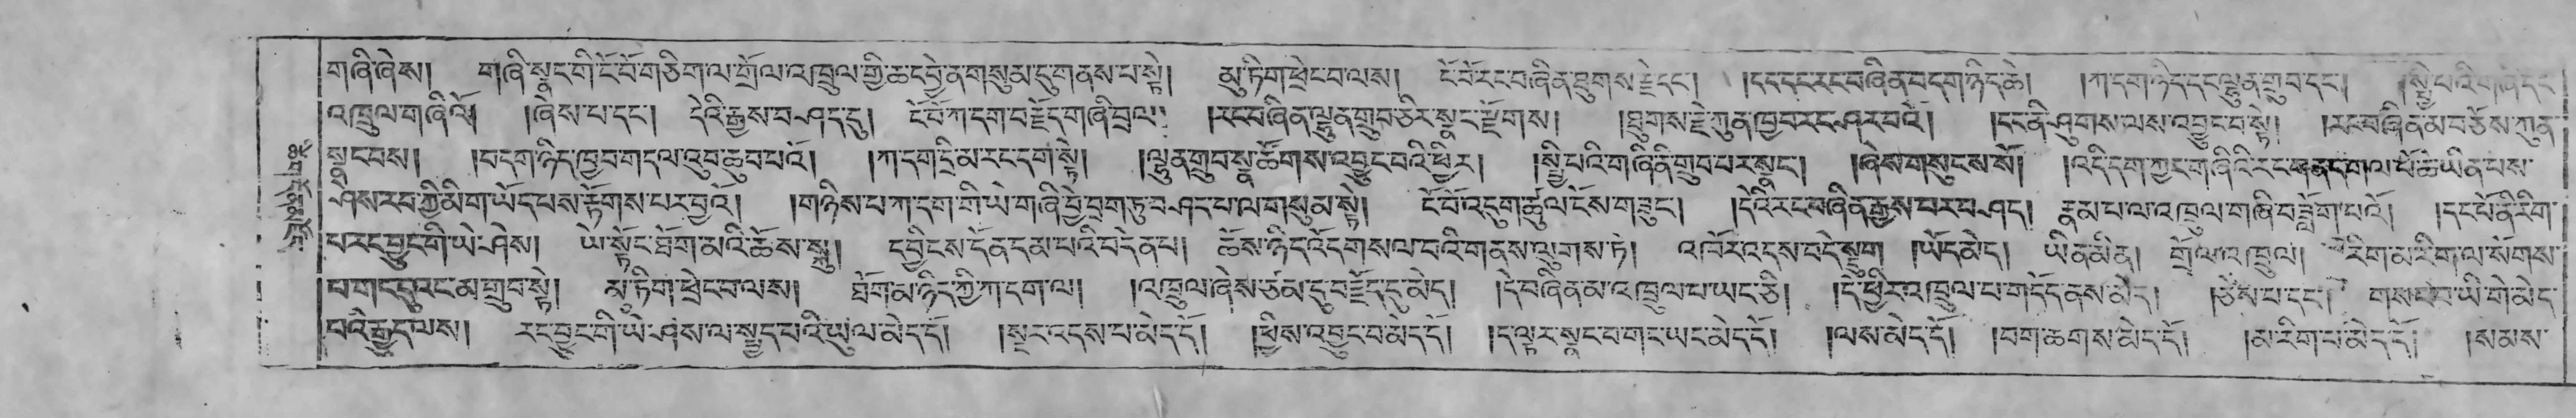 གཞི་ཞེས། གཞི་སྣང་གི་ངོ་བོ་གཅིག་ལ་གྲོལ་འཁྲུལ་གྱི་ཆ་དབྱེ་ན་གསུམ་དུ་གནས་པ་སྟེ། མུ་ཏིག་ཕྲེང་བ་ལས། ངོ་བོ་རང་བཞིན་ཐུགས་རྗེ་དང་། །དང་རང་བཞིན་བདག་ཉིད་ཆེ། །ཀ་དག་ཉིད་དང་ལྷུན་གྲུབ་དང་། །སྤྱི་པའི་གཞི་དང་
འཁྲུལ་གཞིའོ། །ཞེས་པ་དང་། དེའི་རྒྱས་བཤད་དུ། ངོ་བོ་ཀ་དག་བརྗོད་གཞི་བྲལ། །རང་བཞིན་ལྷུན་གྲུབ་ཅིར་སྣང་རྫོགས། །ཐུགས་རྗེ་ཀུན་ཁྱབ་རང་ཤར་བའོ། །དང་ནི་ཤུགས་ལས་འབྱུང་བ་སྟེ། །རང་བཞིན་མ་བཅོས་ཀུན་
སྣང་བས། །བདག་ཉིད་ཁྱབ་གདལ་འུབ་ཆུབ་པའོ། །ཀ་དག་དྲི་མ་རང་དག་སྟེ། །ལྷུན་གྲུབ་སྣ་ཚོགས་འབྱུང་བའི་ཕྱིར། །སྤྱི་པའི་གཞི་ནི་གྲུབ་པར་སྣང་། །ཞེས་གསུངས་སོ། །འདི་དག་ཀྱང་གཞིའི་རང་གནད་གལ་པོ་ཆེ་ཡིན་པས་
ཤེས་རབ་ཀྱི་མིག་ཡོད་པས་རྟོགས་པར་བྱའོ། །གཉིས་པ་ཀ་དག་གི་ཡེ་གཞི་བྱེ་བྲག་ཏུ་བཤད་པ་ལ་གསུམ་སྟེ། ངོ་བོ་འདུག་ཚུལ་ངོས་གཟུང་། །དེའི་རང་བཞིན་རྒྱས་པར་བཤད། རྣམ་པ་ལ་འཁྲུལ་གཞི་བཟློག་པའོ། །དང་པོ་ནི་རིག་
པ་རང་བྱུང་གི་ཡེ་ཤེས། ཡེ་སྟོང་ཐོག་མའི་ཆོས་སྐུ། དབྱིངས་དོན་དམ་པའི་བདེན་པ། ཆོས་ཉིད་འོད་གསལ་བའི་གནས་ལུགས་ཏེ། འཁོར་འདས་བདེ་སྡུག །ཡོད་མེད། ཡིན་མིན། གྲོལ་འཁྲུལ། རིག་མ་རིག་ལ་སོགས་
པ་གང་དུའང་མ་གྲུབ་སྟེ། མུ་ཏིག་ཕྲེང་བ་ལས། ཐོག་མ་ཉིད་ཀྱི་ཀ་དག་ལ། །འཁྲུལ་ཞེས་ཙམ་དུ་བརྗོད་དུ་མེད། །དེ་བཞིན་མ་འཁྲུལ་པ་ཡང་ཅི། །དེ་ཕྱིར་འཁྲུལ་པ་གདོད་ནས་མེད། །ཅེས་པ་དང་། གསང་བ་ཡི་གེ་མེད་
པའི་རྒྱུད་ལས། རང་བྱུང་གི་ཡེ་ཤེས་ལ་སྤྱད་པའི་ཡུལ་མེད་དོ། །སྔར་འདས་པ་མེད་དོ། །ཕྱིས་འབྱུང་བ་མེད་དོ། །ད་ལྟར་སྣང་བ་གང་ཡང་མེད་དོ། །ལས་མེད་དོ། །བག་ཆགས་མེད་དོ། །མ་རིག་པ་མེད་དོ། །སེམས་